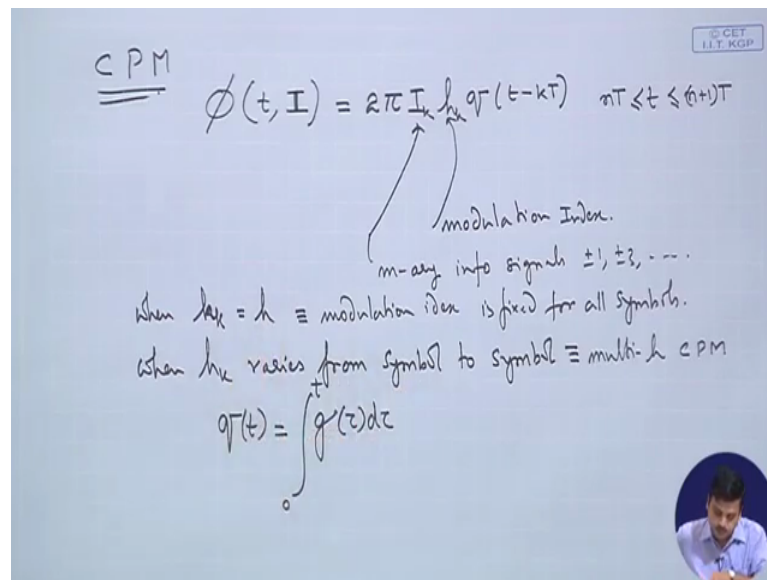 © CET
I.I.T. KGP
CPM
ϕ(t, I) = 2π I_k h_k q(t-kT) nT ≤ t ≤ (n+1)T
modulation Index.
m-ary info signals ±1, ±3, ----
when h_k = h ≡ modulation idex is fixed for all symbols.
when h_k varies from symbol to symbol ≡ multi-h CPM
q(t) = ∫_0^t g(τ)dτ